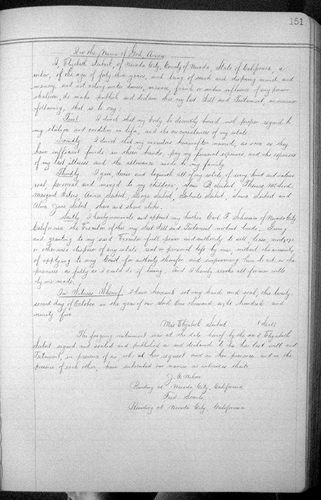 151
In the Name of God, Amen
I, Elizabeth Seibert, of Nevada City, County of Nevada, State of California, a
widow, of the age of fifty three years, and being of sound and disposing mind and
memory, and not acting under duress, menace, fraud or undue influence of any person
whatever, do make publish and declare this my last Will and Testament, in manner
following, that is to say:
First. I direct that my body be decently buried with proper regard to
my station and condition in life, and the circumstances of my estate
Secondly. I direct that my executor hereinafter named, as soon as they
have sufficient funds in their hands, pay my funeral expenses, and the expenses
of my last illness and the allowance made to my family
Thirdly. I give, devise and bequeath all of my estate of every kind and nature
real personal and mixed to my children,
Seibert, George Seibert, Seibert and
Seibert, share and share alike.
Lastly. I hereby nominate and appoint of Nevada City
California the Executor of this my last Will and Testament without bonds, giving
and granting to my said Executor full power and authority to sell, lease, mortgage
or otherwise dispose of my estate real or personal left by me, without the necessity
of applying to any Court for authority therefor and empowering him to act in the
premises as fully as I could do if living. And I hereby revoke all former wills
by me made.
In Witness Whereof, I have hereunto set my hand and seal this twenty
second day of October in the year of our Lord One thousand eight hundred and
ninety five
Mrs Elizabeth Seibert (Seal)
The foregoing instrument was at the date hereof by the said Elizabeth
Seibert signed and sealed and published as and declared to be her last will and
Testament, in presence of us, who at her request and in her presence and in the
presence of each other, have subscribed our names as witnesses thereto
Residing at Nevada City, California
Fred Searls
Residing at Nevada City California